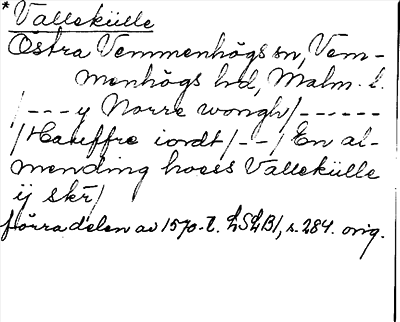 * Vallekülle
Östra Vemmenhögs sn, Vem-
menhögs hd, Malm. l.
/---y Norre wongh/------
/Hauffre iordt/--/En al-
mending hoess Vallekülle
ij skr/
förra delen av 1570-t. LSLB1, s. 284. orig.